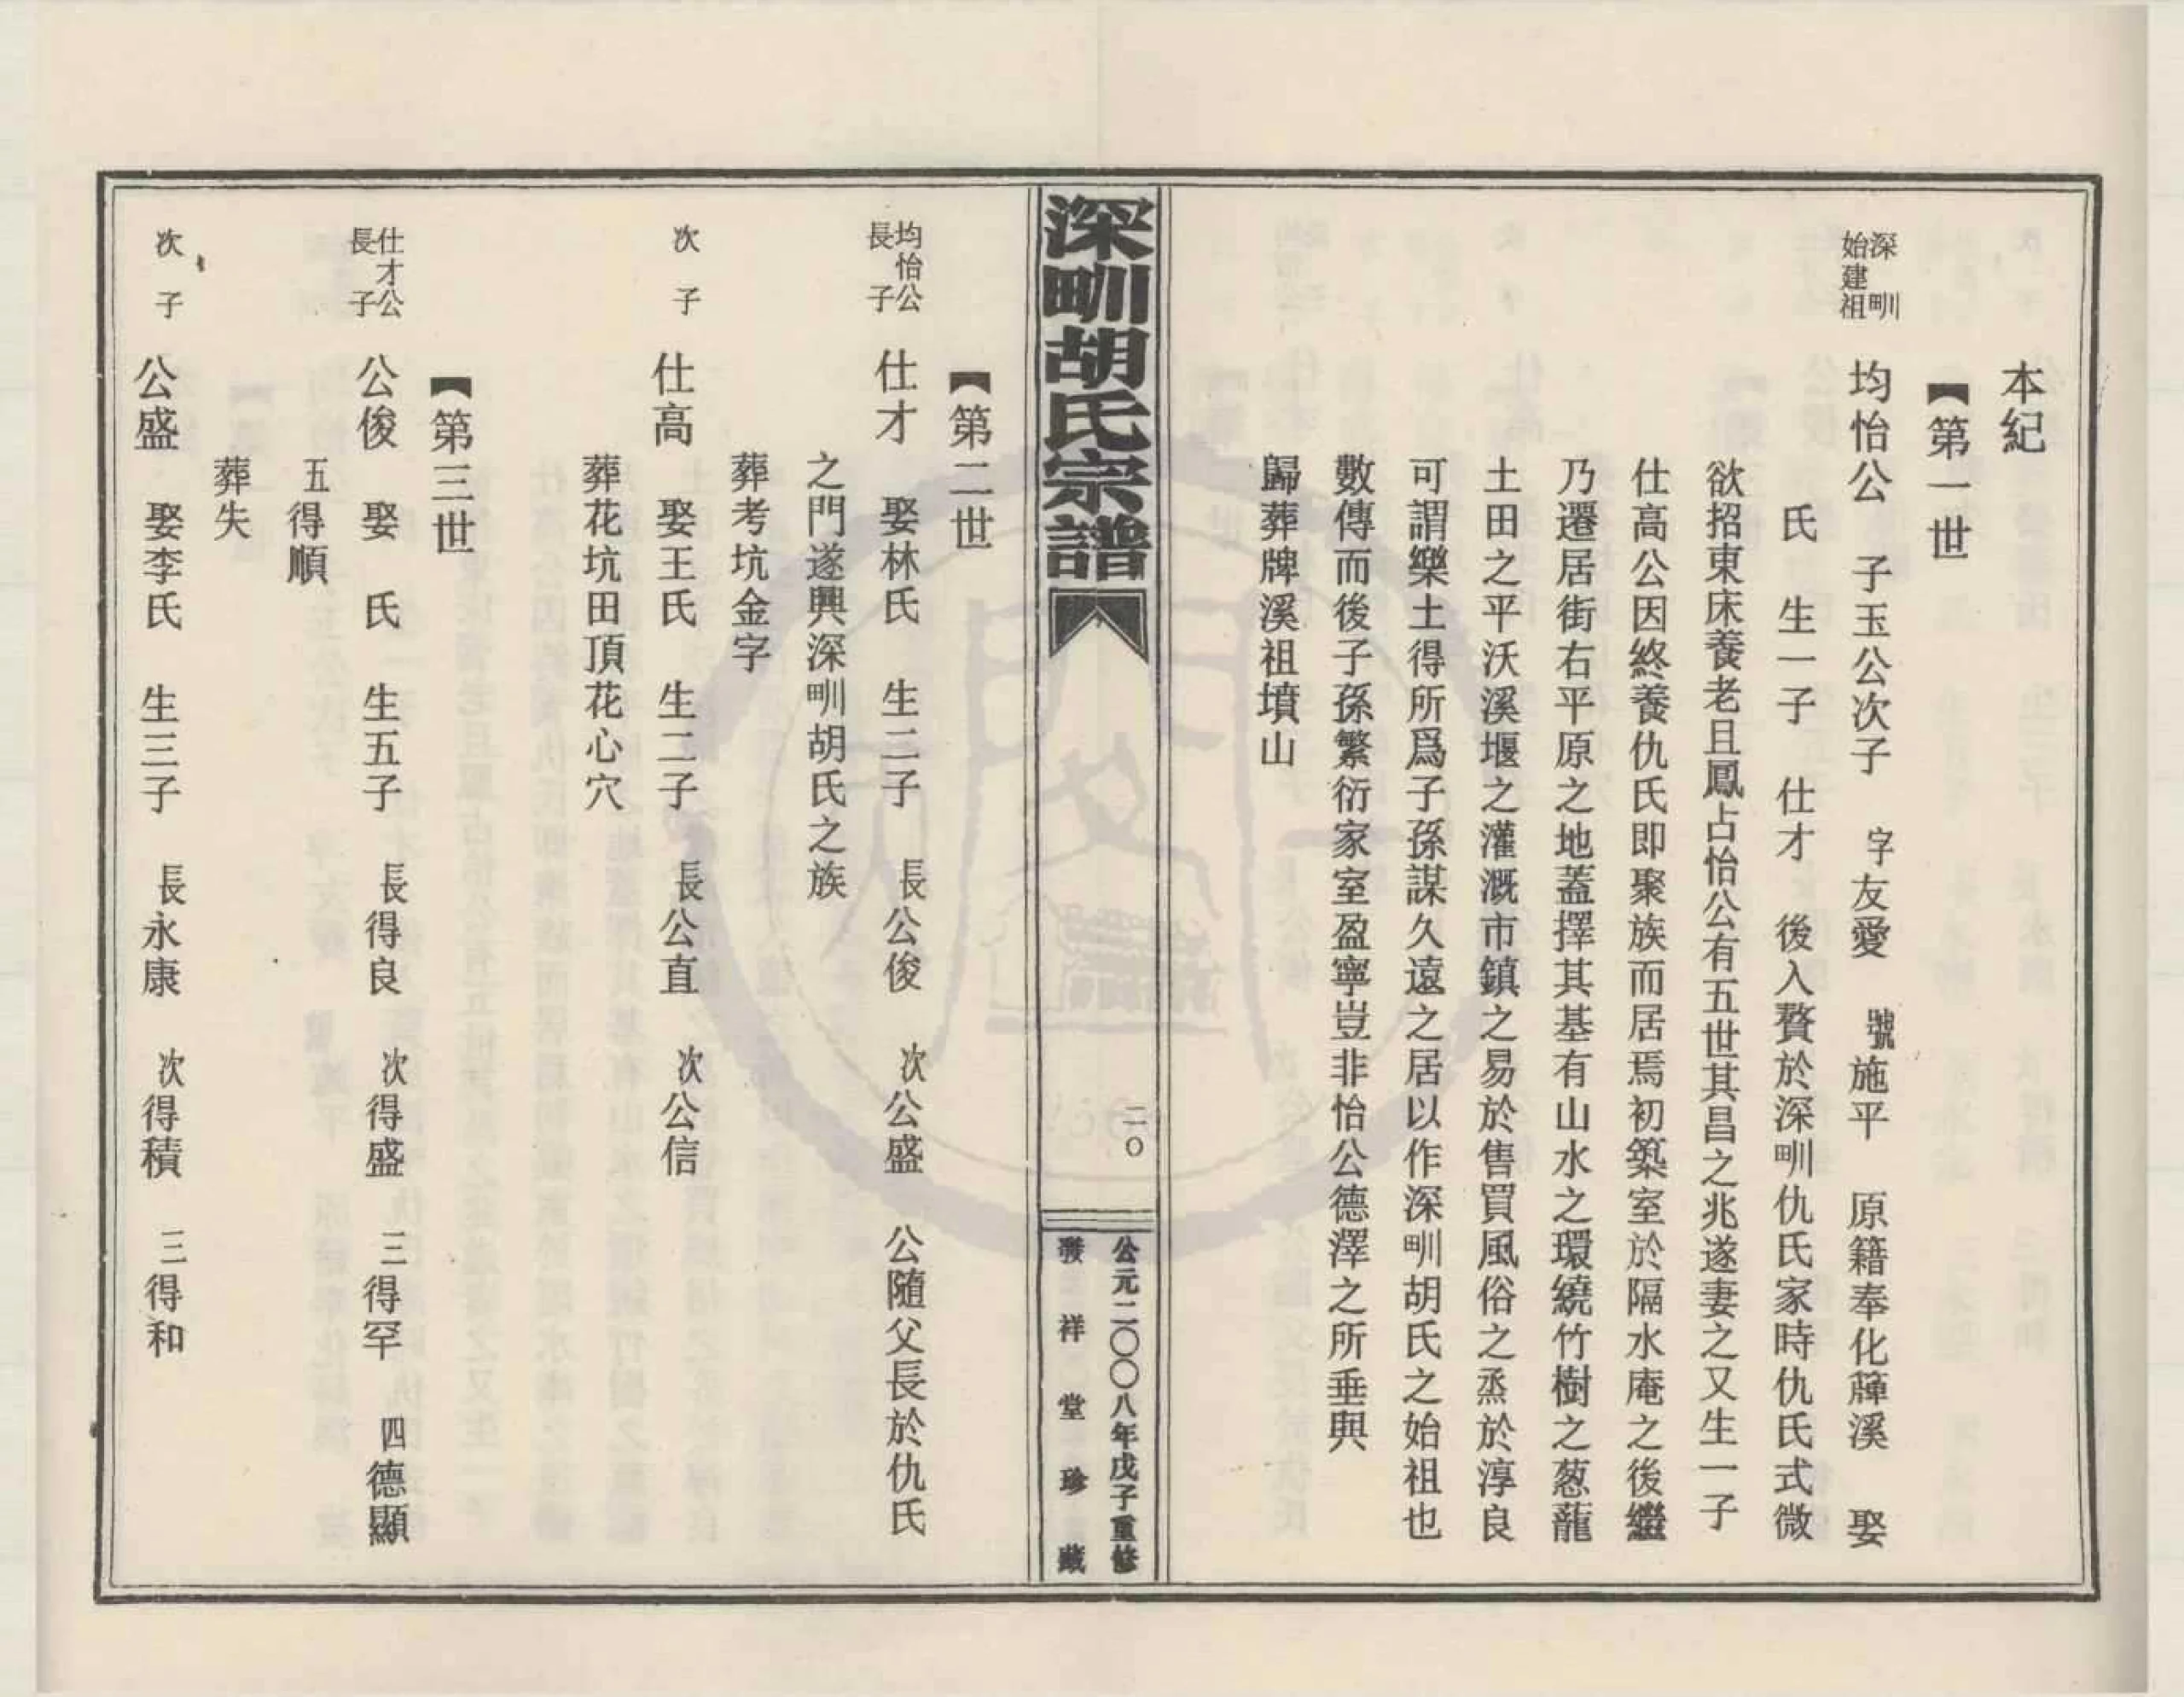 本紀
【第一世
深甽
始建祖
均怡公 子玉公次子 字友愛 號施平 原籍奉化溪 娶
氏 生一子 仕才 後入贅於深甽仇氏家時仇氏式微
欲招東床養老且鳳占怡公有五世其昌之兆遂妻之又生一子
仕高公因終養仇氏即聚族而居焉初築室於隔水庵之後繼
乃遷居街右平原之地蓋擇其基有山水之環繞竹樹之葱蘢
土田之平沃溪堰之灌溉市鎮之易於售買風俗之烝於淳良
可謂樂土得所爲子孫謀久遠之居以作深甽胡氏之始祖也
數傳而後子孫繁衍家室盈寧豈非怡公德澤之所垂與
歸葬牌溪祖墳山
深甽胡氏宗譜
二〇
公元二〇〇八年戊子重修
發祥堂珍藏
【第二世
均怡公
長子
仕才 娶林氏 生二子 長公俊 次公盛 公隨父長於仇氏
之門遂興深甽胡氏之族
葬考坑金字
次子 仕高 娶王氏 生二子 長公直 次公信
葬花坑田頂花心穴
【第三世
仕才公
長子
公俊 娶 氏 生五子 長得良 次得盛 三得罕 四德顯
五得順
葬失
次子 公盛 娶李氏 生三子 長永康 次得積 三得和